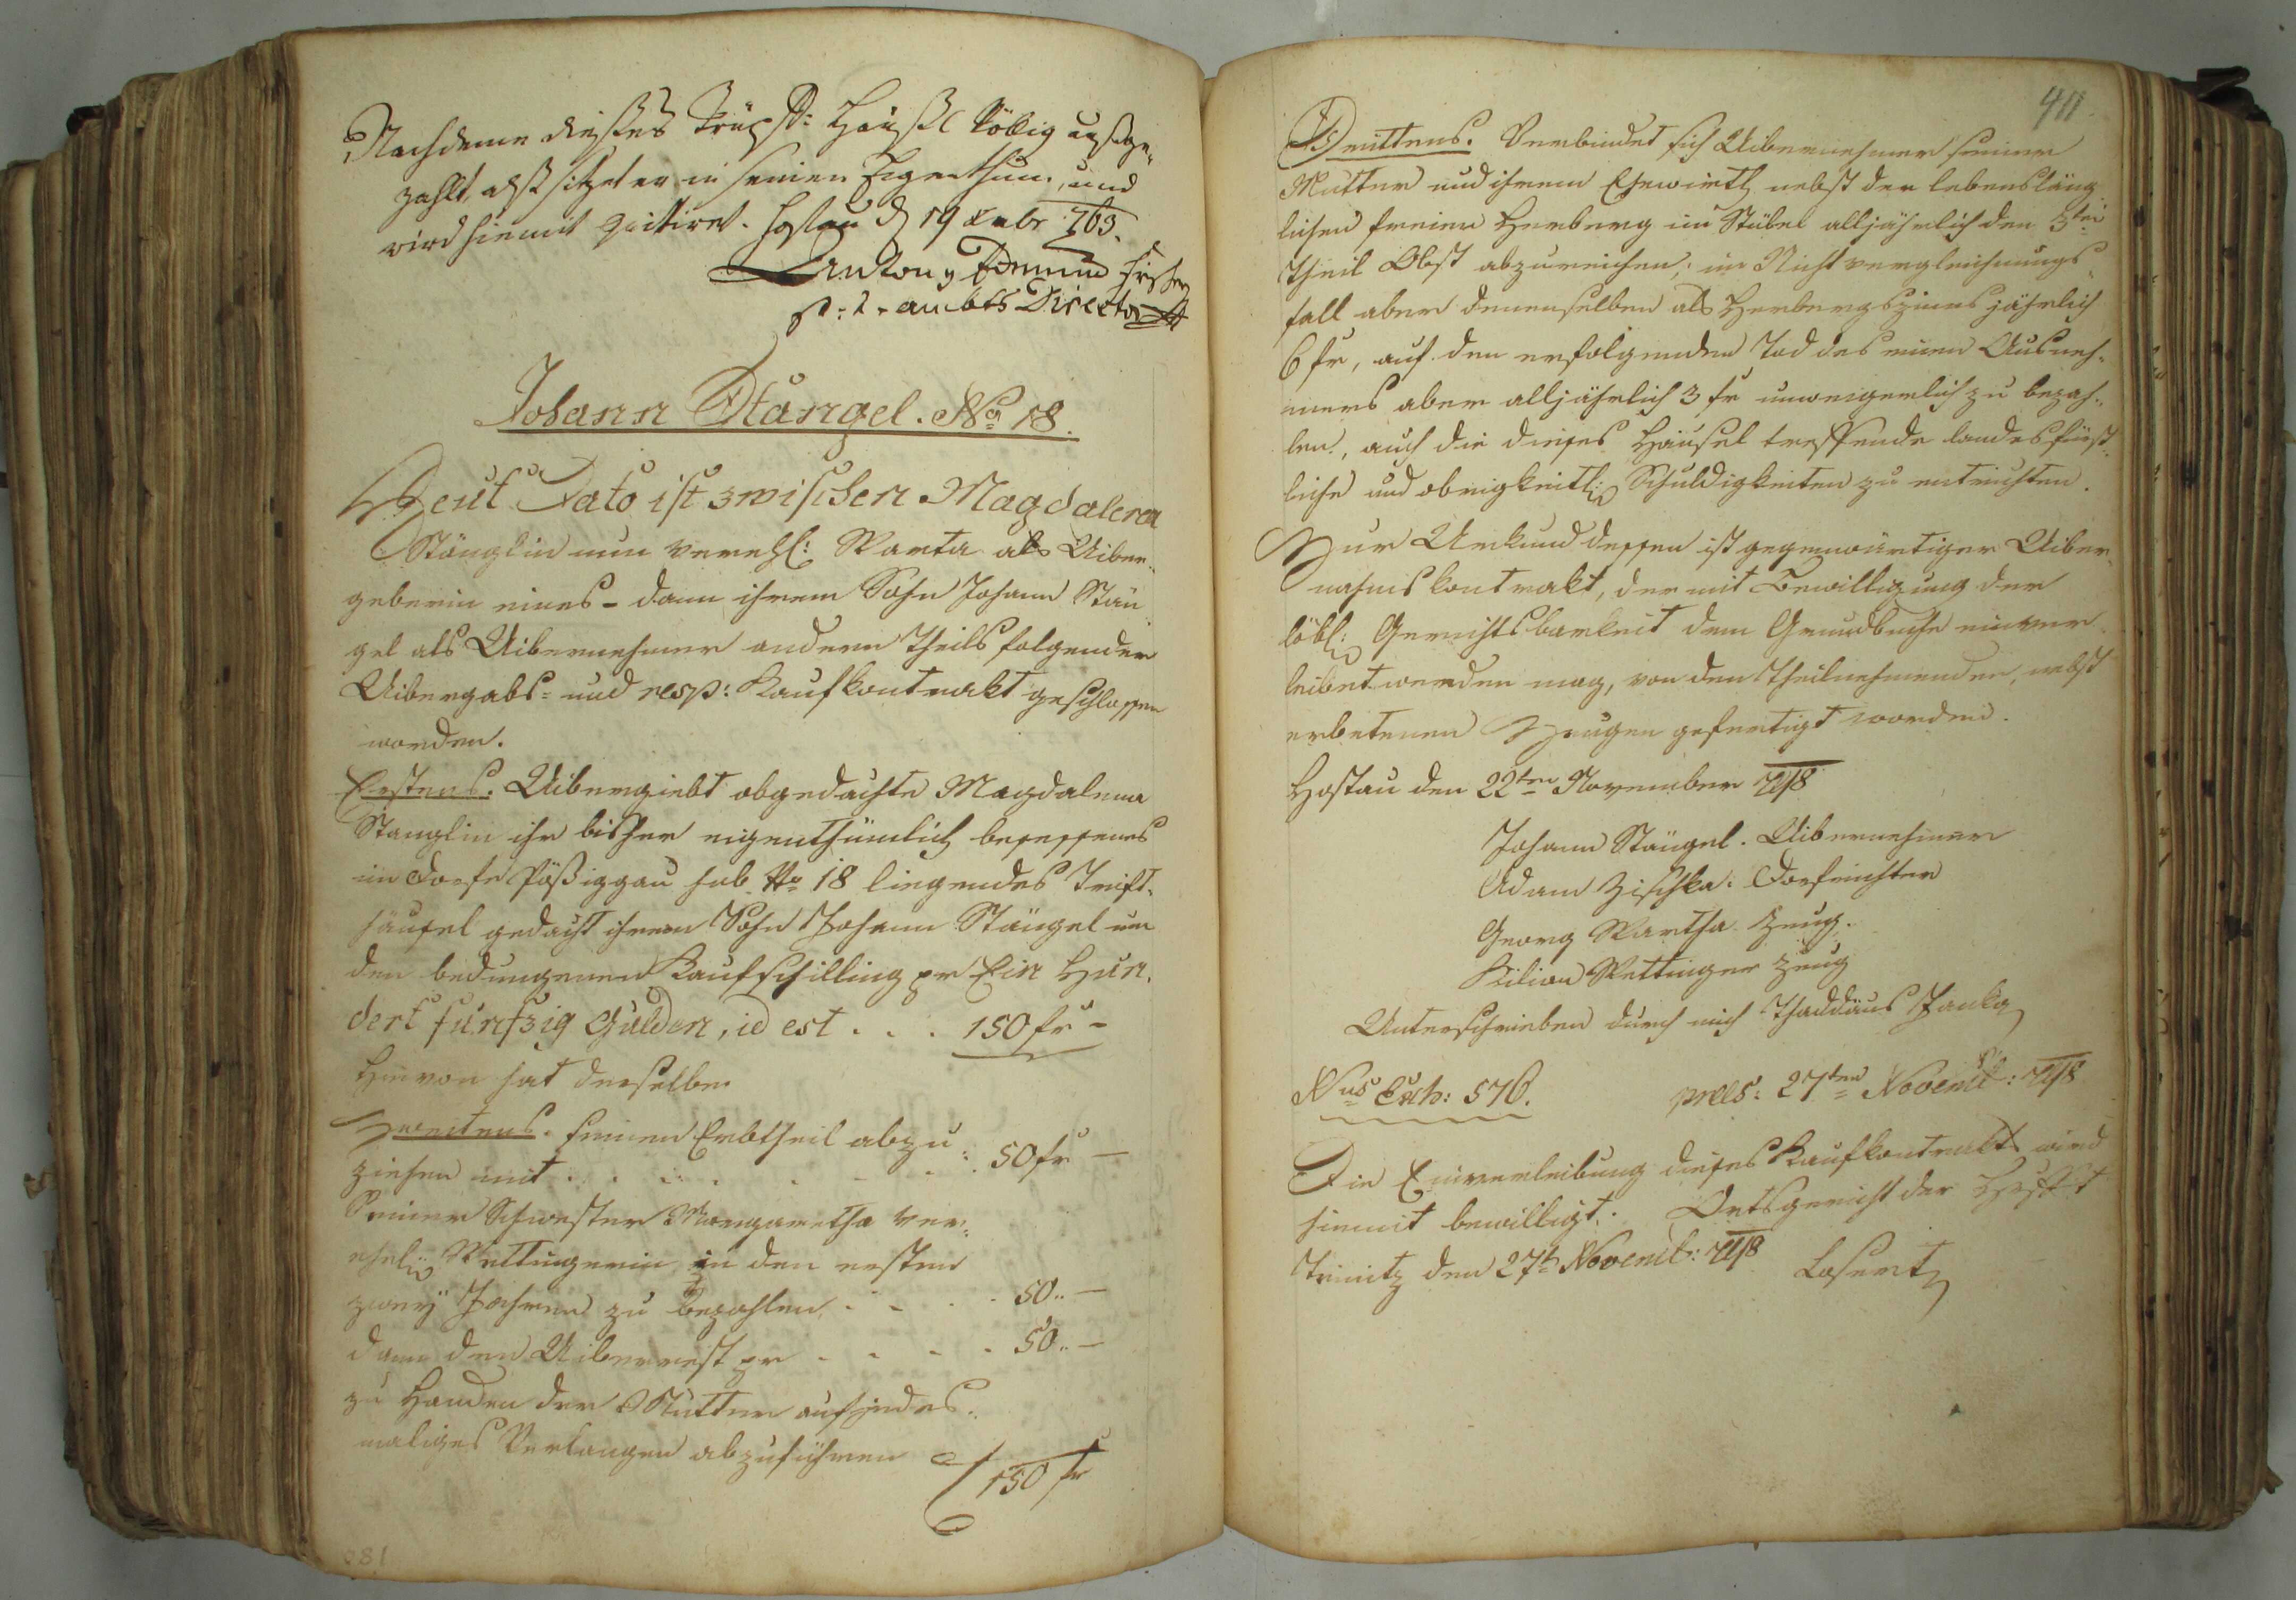 Nachdeme dießes Häußl völlig außge-
zahlt, alß sitzet er in seinen Eigenthum, und
wird hiemit quitiret. Hostau d 19 Xnbr 763.
Antony Fischer
p: t. ambts Director
Johann Stängel. No 18.
Heut Dato ist zwischen Magdalena
Stänglin nun verehl: Warta als Uiber-
geberin eines- dann ihrem Sohn Johann Stän
gel als Uibernehmer andern Theils folgender
Uibergabs- und resp: Kaufkontrakt geschlossen
worden.
Erstens. Uibergiebt obgedachte Magdalena
Stanglin ihr bisher eigenthümlich besessenes
im Dorfe Pößiggau sub No 18 liegendes Trift-
häusel gedacht ihrem Sohn Johann Stängel um
den bedungenen Kaufschilling pr Ein Hun-
dert funfzig Gulden, id est . . . 150 fr -
Hievon hat derselbe
Zweitens. seinen Erbtheil abzu
ziehen mit . . . . . . . 50 fr —
Seiner Schwester Margaretha ver-
ehel: Wettingerin, in den ersten
zwey Jahren zu bezahlen . . . . 50 .. —
dann den Uiberrest pr . . . . 50 .. —
zu Handen der Mutter auf jedes-
maliges Verlangen abzuführen
150 fr
081
411
Drittens. Verbindet sich Uibernehmer seiner
Mutter und ihrem Ehewirth nebst der lebensläng
lichen freien Herberg im Stübel alljährlich den 3ten
Theil Obst abzureichen; im Nichtvergleichungs-
fall aber denenselben als Herbergszines jährlich
6 fr, auf den erfolgenden Tod des einen Ausneh-
mers aber alljährlich 3 fr unweigerlich zu bezah-
len, auch die dieses Häusel treffende landesfürst-
liche und obrigkeitl: Schuldigkeiten zu entrichten.
Zur Urkund dessen ist gegenwärtiger Uiber-
nahms kontrakt, der mit Bewilligung der
löbl: Gerichtsbarkeit dem Grundbuche einver
leibet werden mag, von den Theilnehmenden, nebst
erbetenen Zeugen gefertigt worden.
Hostau den 22ten November 798
Johann Stängel. Uibernehmer
Adam Zischka: Dorfrichter
Georg Wartha Zeug.
Kilian Wettinger Zeug
Unterschrieben durch mich Thaddäus Janka
Nus Exh: 576. prs: 27ten Novemb: 798
Die Einverleibung dieses Kaufkontrakts wird
hiemit bewilligt. Ortsgericht der Hrschft
den 27t Novemb: 798 Losert